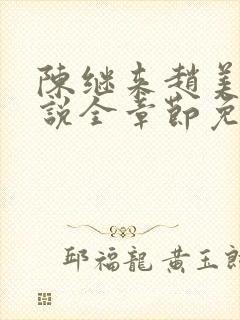 陳继来趙美
説全章節免
邱福龍 黄玉郎